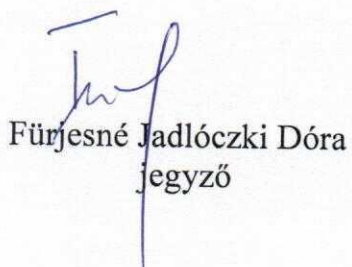 Fürjesné Jadlóczki Dóra
jegyző